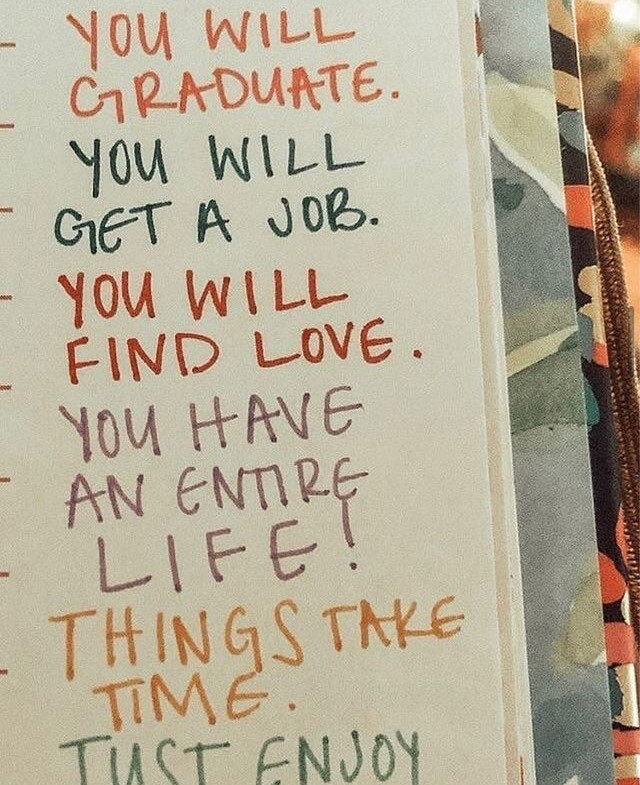 YOU WILL
GRADUATE.
YOU WILL
GET A JOB.
YOU WILL
FIND LOVE.
YOU HAVE
AN ENTIRE
LIFE!
THINGS TAKE
TIME.
JUST ENJOY